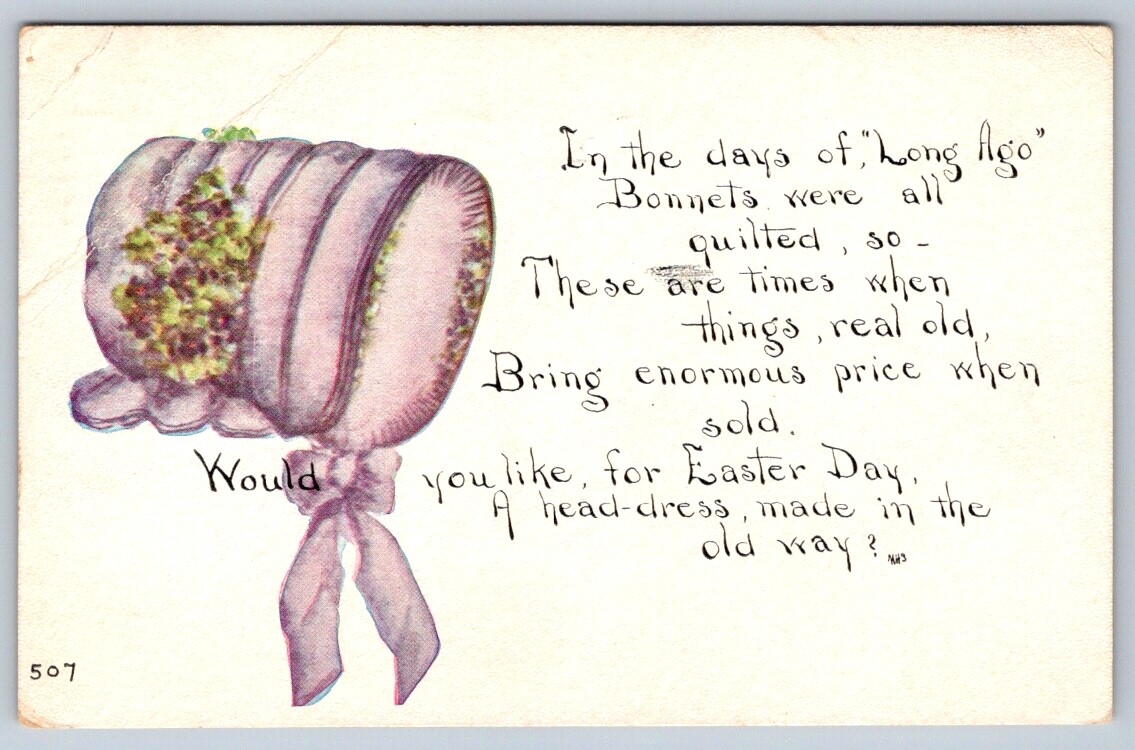 In the days of, "Long Ago"
Bonnets were all
quilted, so -
These are times when
things, real old,
Bring enormous price when
sold.
Would you like, for Easter Day,
A head-dress, made in the
old way?
MHS
507